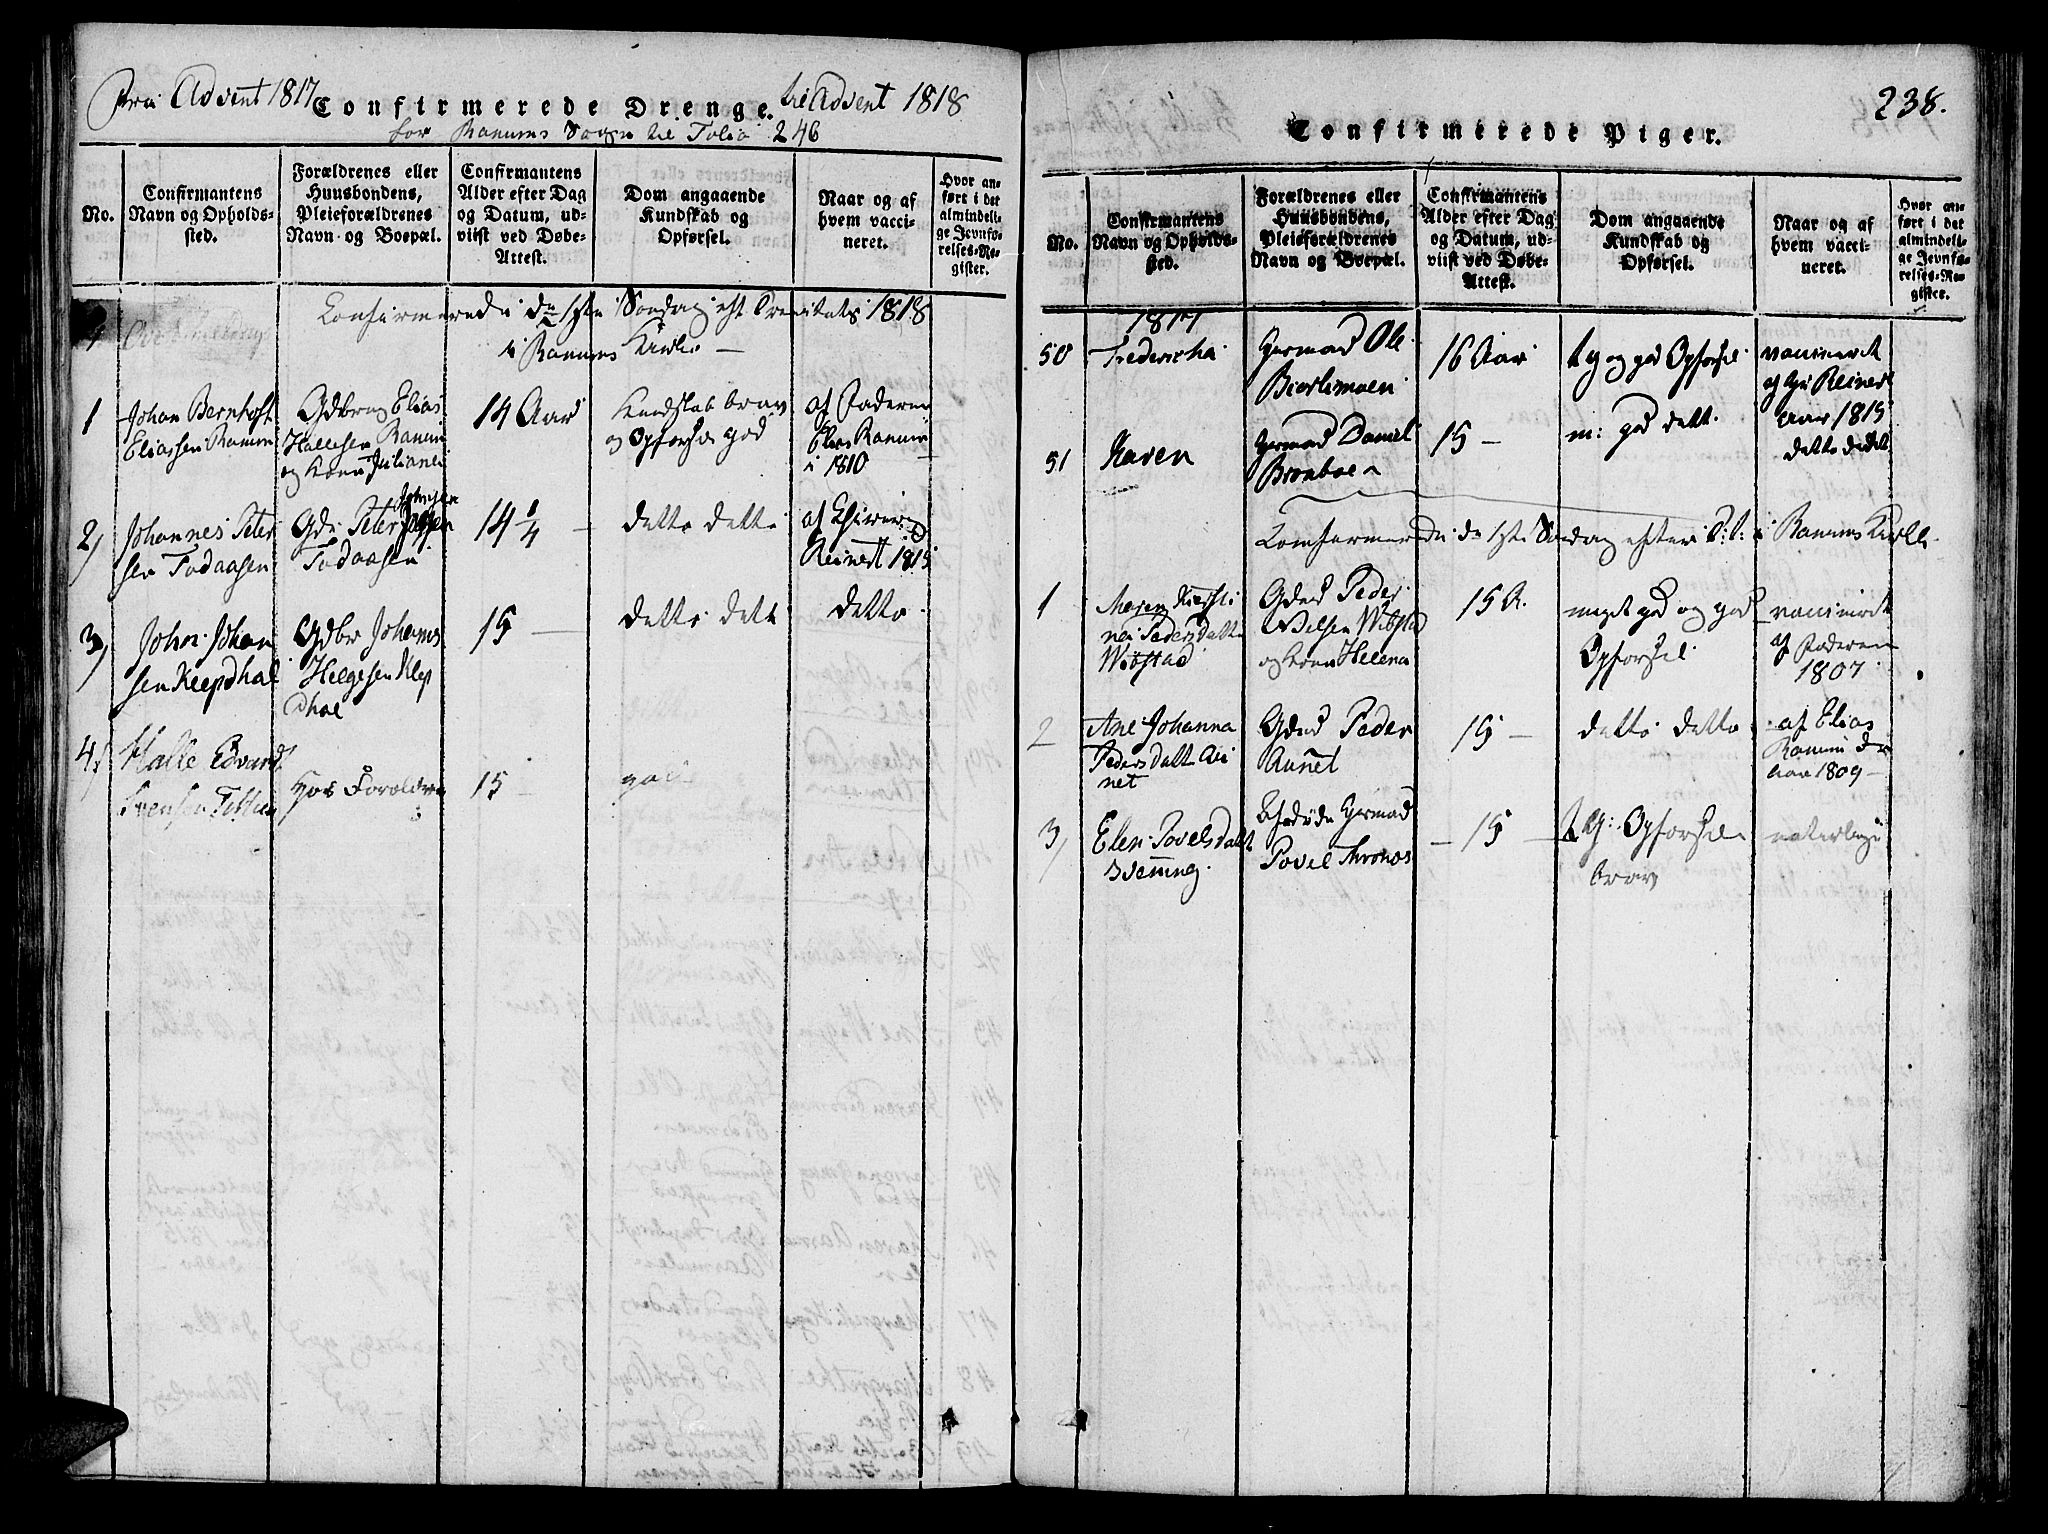 Fra Advent 1817 Confirmerede Drenge. til Advent 1818
for Ranums Sogn til Folio 246
No.
Confirmantens
Navn og Opholds-
sted.
Forældrenes eller
Huusbondens,
Pleieforældrenes
Navn og Boepæl.
Confirmantens
Alder efter Dag
og Datum, ud-
viist ved Døbe-
Attest.
Dom angaaende
Kundskab og
Opførsel.
Naar og af
hvem vacci-
neret.
Hvor an-
ført i det
almindeli-
ge Jevnfø-
relses-Re-
gister.
Confirmerede i 1ste Søndag eft Trinitatis 1818
i Ranums Kirke —
1
Johan Bernhoft
Eliassen Ranum
Gdbrug Elias
Hallesen Ranum
og Kone Juliane
14 Aar
Kundskab brav
og Opførsel god
af Faderen
Elias Ranum
i 1810
2)
Johannes Peter
sen Fodaasen
Gd: Peter Johnsen
Fodaasen
14 1/4 —
detto detto
af
Reinert 1815
3)
John Johan
sen Kleepdhal
Gdbr Johannes
Helgesen Klep
dhal
15 —
detto detto
detto
4)
Halle Edvard
Svensen
Hos Forældrene
15 —
god
238.
Confirmerede Piger.
No.
Confirmantens
Navn og Opholds-
sted.
Forældrenes eller
Huusbondens,
Pleieforældrenes
Navn og Boepæl.
Confirmantens
Alder efter Dag
og Datum, ud-
viist ved Døbe-
Attest.
Dom angaaende
Kundskab og
Opførsel.
Naar og af
hvem vacci-
neret.
Hvor an-
ført i det
almindeli-
ge Jevnfø-
relses-Re-
gister.
1817
50
Fredericha
Germad Ole
Biorlimoen
16 Aar
tg og god Opførsel
vaccineret
af Hr Reinert
Aar 1815
51
Karen
Germad Daniel
Bronboen
15 —
m: god dett.
detto detto
Confirmerede i 1ste Søndag efter T: i Ranums Kirke
1
Maren Kirsti
ne Pedersdatt
Wibstad
Gdmd Peder
Nilsen Wibstad
og Kone Helena
15 A.
meget god og god
Opførsel
vaccineret
af Faderen
1807
2
Ane Johanna
Pedersdatt Au
net
Gdmd Peder
Aunet
15 —
detto detto
af Elias
Ranum
Aar 1809 —
3)
Elen Povelsdatt
Svenning
Afdøde Germad
Povel Thronos
— 15 —
tg: Opførsel
brav
naturlige